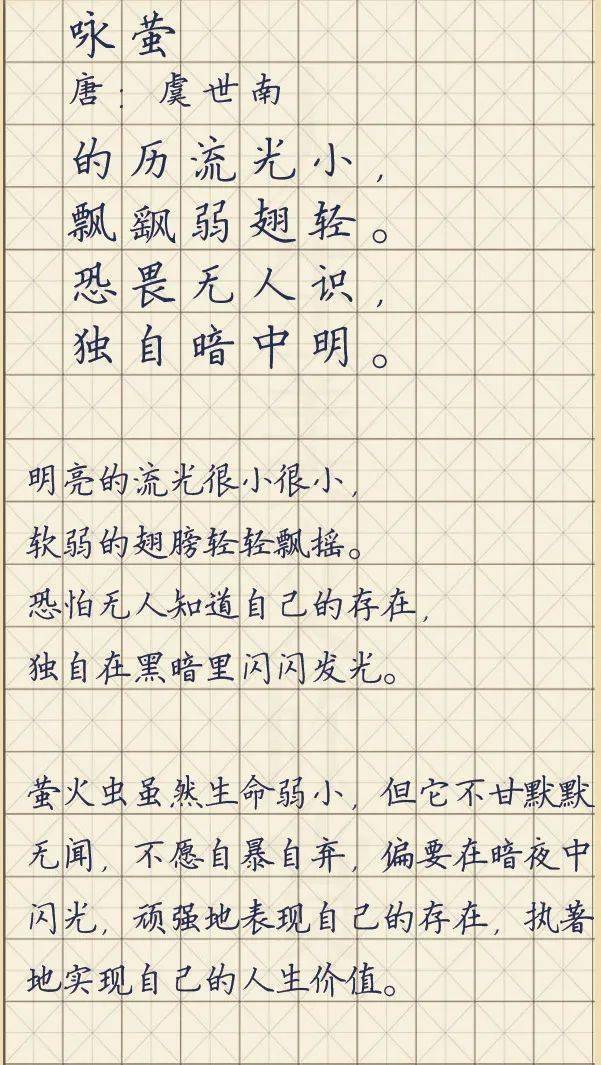 咏萤
唐：虞世南
的历流光小，
飘飖弱翅轻。
恐畏无人识，
独自暗中明。
明亮的流光很小很小，
软弱的翅膀轻轻飘摇。
恐怕无人知道自己的存在，
独自在黑暗里闪闪发光。
萤火虫虽然生命弱小，但它不甘默默
无闻，不愿自暴自弃，偏要在暗夜中
闪光，顽强地表现自己的存在，执著
地实现自己的人生价值。